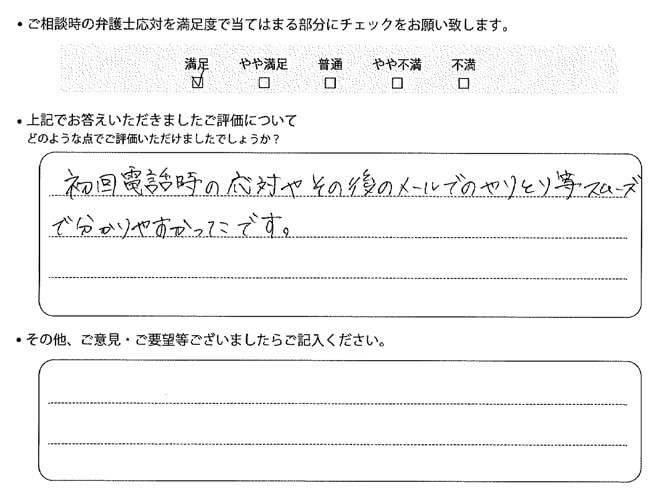 ・ご相談時の弁護士応対を満足度で当てはまる部分にチェックをお願い致します。
満足 やや満足 普通 やや不満 不満
☑ □ □ □ □
・上記でお答えいただきましたご評価について
どのような点でご評価いただけましたでしょうか？
初回電話時の応対やその後のメールでのやりとり等スムーズ
で分かりやすかったです。
・その他、ご意見・ご要望等ございましたらご記入ください。